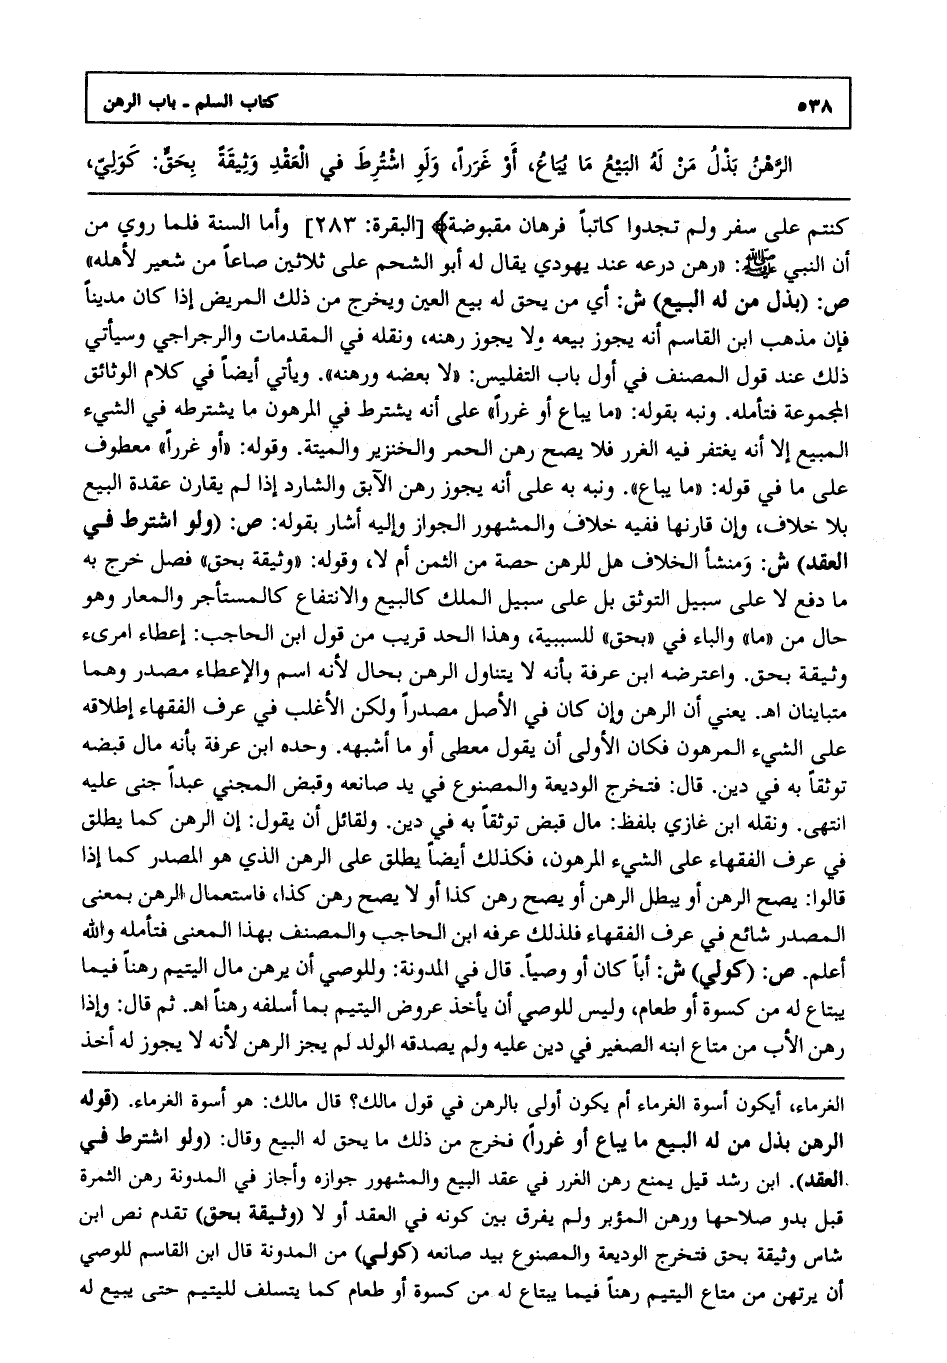 ٥٣٨
كتاب السلم ـ باب الرهن
الرَّهْنُ بَذْلُ مَنْ لَهُ البَيْعُ مَا يُبَاعُ، أَوْ غَرَراً، وَلَوِ اشْتُرِطَ في الْعَقْدِ وَثِيقَةً بِحَقٍّ: كَوَلِيّ،
كنتم على سفر ولم تجدوا كاتباً فرهان مقبوضة﴾ [البقرة: ٢٨٣] وأما السنة فلما روي من
أن النبي ﷺ: «رهن درعه عند يهودي يقال له أبو الشحم على ثلاثين صاعاً من شعير لأهله»
ص: (بذل من له البيع) ش: أي من يحق له بيع العين ويخرج من ذلك المريض إذا كان مديناً
فإن مذهب ابن القاسم أنه يجوز بيعه ولا يجوز رهنه، ونقله في المقدمات والرجراجي وسيأتي
ذلك عند قول المصنف في أول باب التفليس: «لا بعضه ورهنه». ويأتي أيضاً في كلام الوثائق
المجموعة فتأمله. ونبه بقوله: «ما يباع أو غرراً» على أنه يشترط في المرهون ما يشترطه في الشيء
المبيع إلا أنه يغتفر فيه الغرر فلا يصح رهن الحمر والخنزير والميتة. وقوله: «أو غرراً» معطوف
على ما في قوله: «ما يباع». ونبه به على أنه يجوز رهن الآبق والشارد إذا لم يقارن عقدة البيع
بلا خلاف، وإن قارنها ففيه خلاف والمشهور الجواز وإليه أشار بقوله: ص: (ولو اشترط في
العقد) ش: وَمنشأ الخلاف هل للرهن حصة من الثمن أم لا، وقوله: «وثيقة بحق» فصل خرج به
ما دفع لا على سبيل التوثق بل على سبيل الملك كالبيع والانتفاع كالمستأجر والمعار وهو
حال من «ما» والباء في «بحق» للسببية، وهذا الحد قريب من قول ابن الحاجب: إعطاء امرىء
وثيقة بحق. واعترضه ابن عرفة بأنه لا يتناول الرهن بحال لأنه اسم والإعطاء مصدر وهما
متباينان اهـ. يعني أن الرهن وإن كان في الأصل مصدراً ولكن الأغلب في عرف الفقهاء إطلاقه
على الشيء المرهون فكان الأولى أن يقول معطى أو ما أشبهه. وحده ابن عرفة بأنه مال قبضه
توثقاً به في دين. قال: فتخرج الوديعة والمصنوع في يد صانعه وقبض المجني عبداً جنى عليه
انتهى. ونقله ابن غازي بلفظ: مال قبض توثقاً به في دين. ولقائل أن يقول: إن الرهن كما يطلق
في عرف الفقهاء على الشيء المرهون، فكذلك أيضاً يطلق على الرهن الذي هو المصدر كما إذا
قالوا: يصح الرهن أو يبطل الرهن أو يصح رهن كذا أو لا يصح رهن كذا، فاستعمال الرهن بمعنى
المصدر شائع في عرف الفقهاء فلذلك عرفه ابن الحاجب والمصنف بهذا المعنى فتأمله والله
أعلم. ص: (كولي) ش: أباً كان أو وصياً. قال في المدونة: وللوصي أن يرهن مال اليتيم رهناً فيما
يبتاع له من كسوة أو طعام، وليس للوصي أن يأخذ عروض اليتيم بما أسلفه رهناً اهـ. ثم قال: وإذا
رهن الأب من متاع ابنه الصغير في دين عليه ولم يصدقه الولد لم يجز الرهن لأنه لا يجوز له أخذ
الغرماء، أيكون أسوة الغرماء أم يكون أولى بالرهن في قول مالك؟ قال مالك: هو أسوة الغرماء. (قوله
الرهن بذل من له البيع ما يباع أو غرراً) فخرج من ذلك ما يحق له البيع وقال: (ولو اشترط في
العقد). ابن رشد قيل يمنع رهن الغرر في عقد البيع والمشهور جوازه وأجاز في المدونة رهن الثمرة
قبل بدو صلاحها ورهن المؤبر ولم يفرق بين كونه في العقد أو لا (وثيقة بحق) تقدم نص ابن
شاس وثيقة بحق فتخرج الوديعة والمصنوع بيد صانعه (كولي) من المدونة قال ابن القاسم للوصي
أن يرتهن من متاع اليتيم رهناً فيما يبتاع له من كسوة أو طعام كما يتسلف لليتيم حتى يبيع له